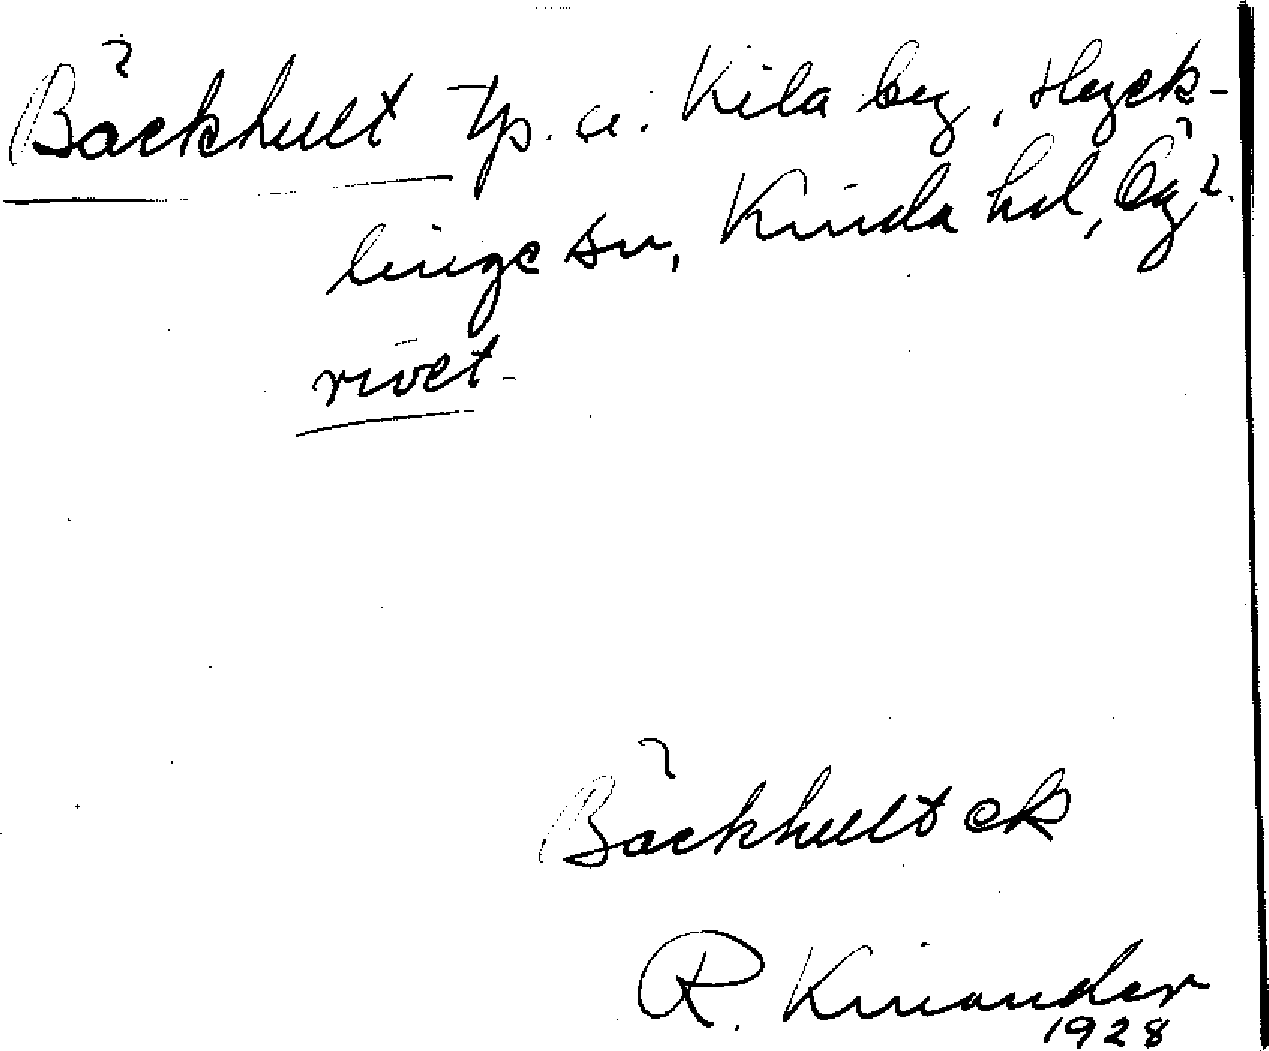 Bäckhult tp. u. Kila by, Hyck-
linge sn, Kinda hd, Ög.
rivet
Bäckhult ek
R. Kinander
1928